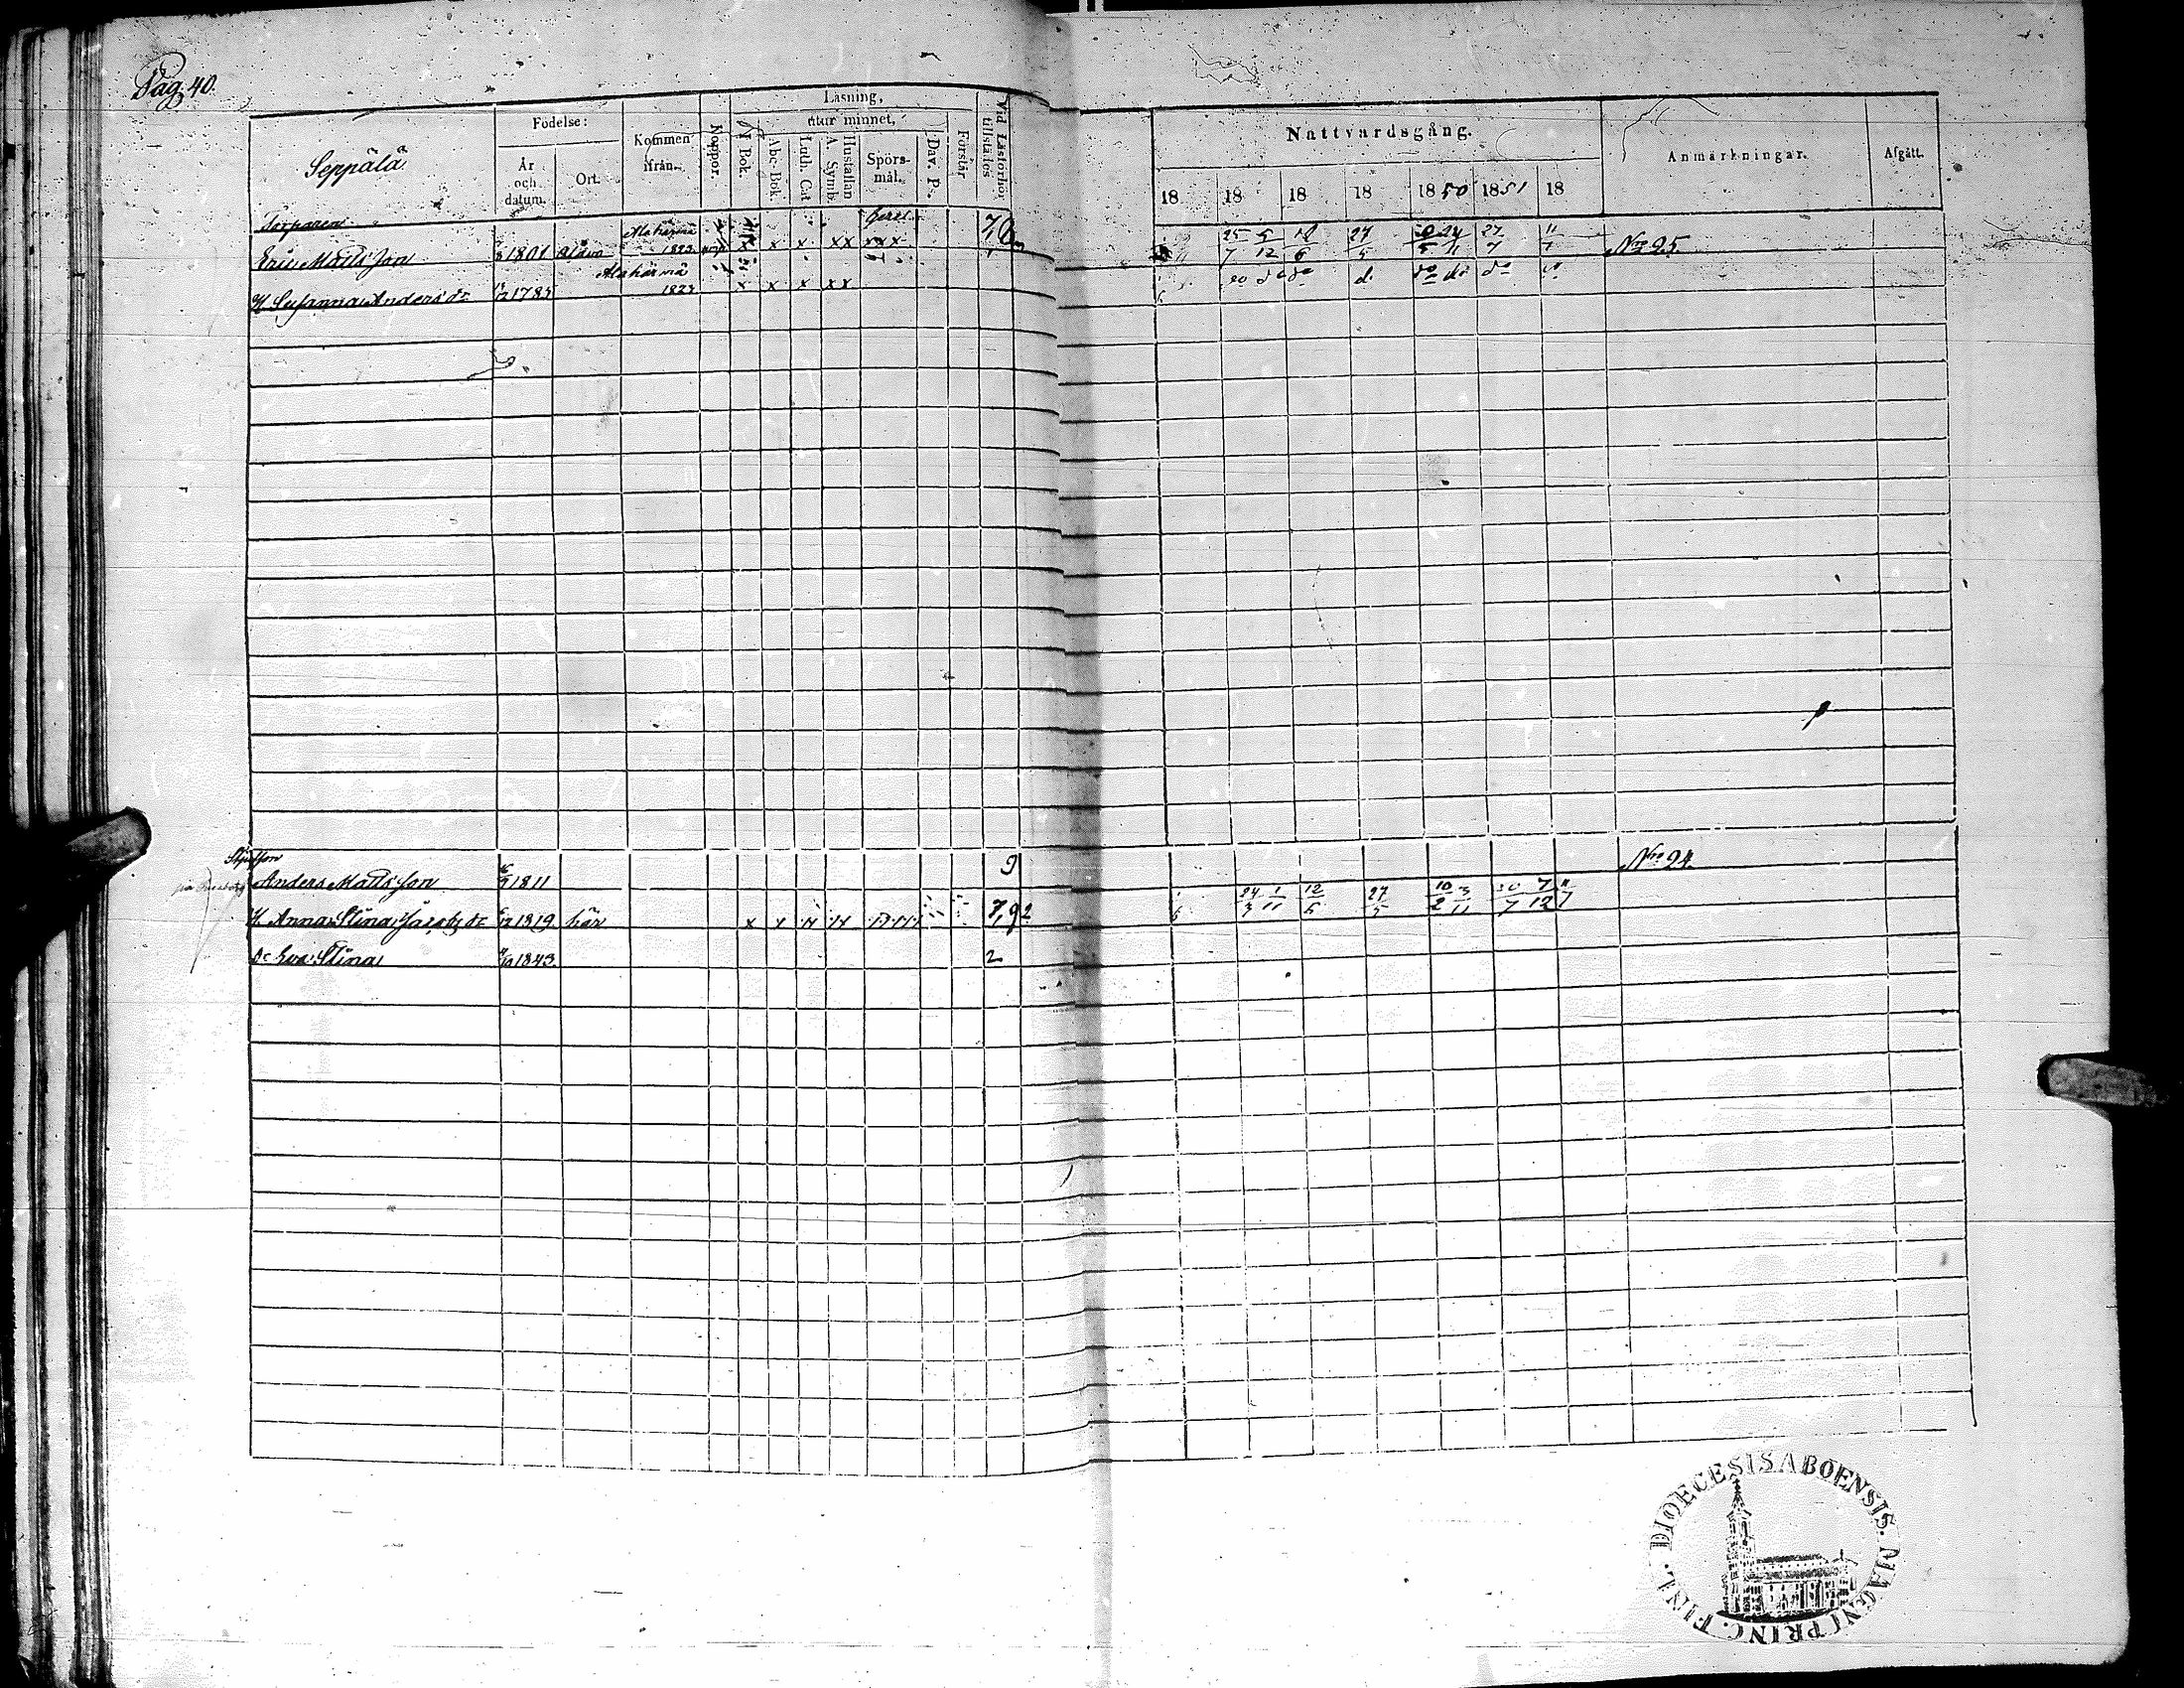 Pag. 40.
Seppälä
Födelse:
År och datum.
Ort.
Kommen ifrån.
Koppor.
Läsning,
I Bok.
utur minnet,
Abc-Bok.
Luth. Cat
Hustaflan A. Symb.
Spörsmål.
Dav. Ps.
Förstår
Vid Läsförhör tillstädes
Nattvardsgång.
18 18 18 18 1850 1851 18
Anmärkningar.
Afgått.
Torparen Alahärmä
Eric Matts Son 1801 Alavo 1823 x x xx xxx 25/7 5/12 18/6 27/5 24/11 27/7 11/7 Nro 25.
Alahärmä
H. Susanna Anders dr 1785 1823 x x x xx do do do do do
Styfson
Anders Matts Son 1811 9 Nro 24.
H. Anna Stina Jacobs dr 1819 här x x 7,92 24/3 1/11 12/5 27/5 10/2 3/11 30/7 7/12 11/7
Dr Eva Stina 1843 2
DIOECESIS ABOENSIS. MAGNI PRINC. FINL.